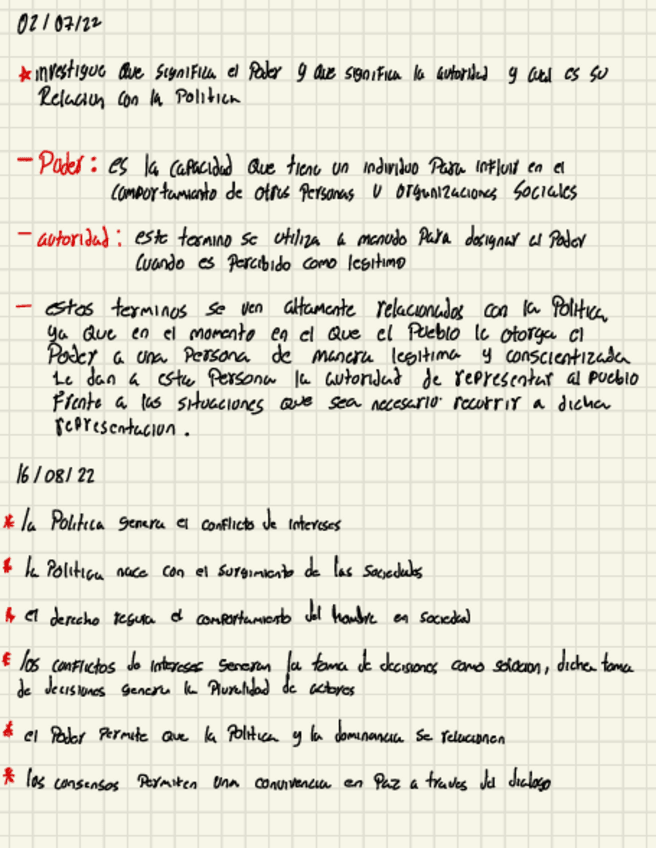 02/07/22
* investigue que significa el Poder y que significa la autoridad y cual es su
Relacion con la Politica
- Poder: es la capacidad que tiene un individuo Para influir en el
comportamiento de otras Personas U organizaciones Sociales
- autoridad: este termino se utiliza a menudo Para designar al Poder
cuando es Percibido como legitimo
- estos terminos se ven altamente relacionados con la Politica,
ya que en el momento en el que el Pueblo le otorga el
Poder a una Persona de manera legitima y conscientizada
Le dan a esta Persona la autoridad de representar al pueblo
frente a las situaciones que sea necesario recurrir a dicha
representacion.
16/08/22
* la Politica genera el conflicto de intereses
* la Politica nace con el surgimiento de las sociedades
* el derecho regula el comportamiento del hombre en sociedad
* los conflictos de intereses generan la toma de decisiones como solucion, dicha toma
de decisiones genera la Pluralidad de actores
* el Poder Permite que la Politica y la dominancia se relacionen
* los consensos Permiten una convivencia en Paz a traves del dialogo